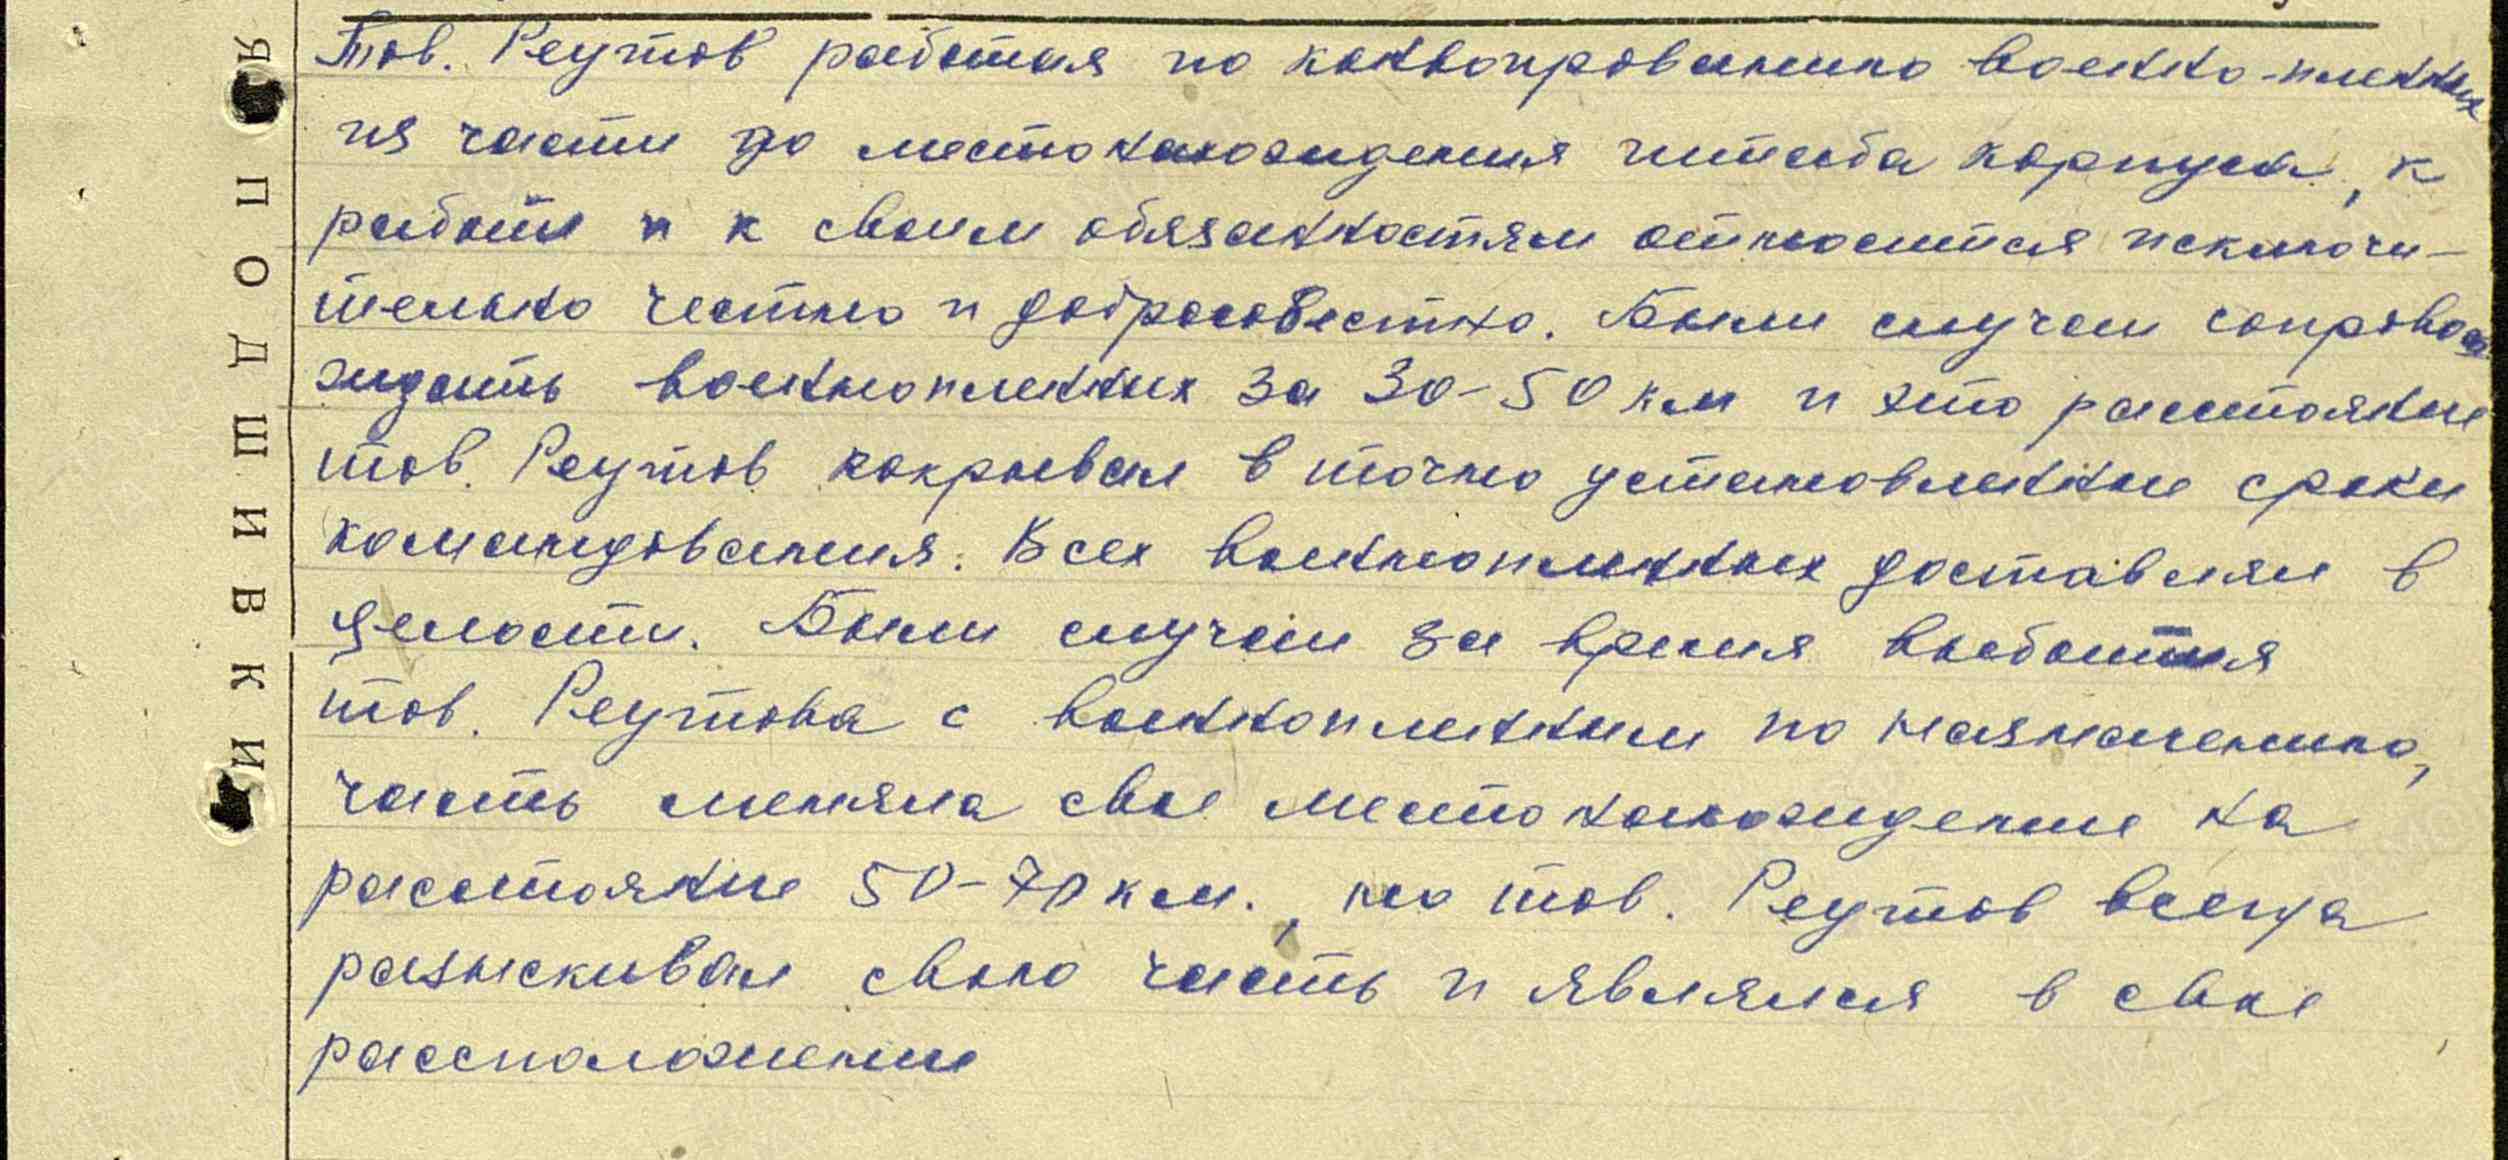 Тов. Реутов работая по конвоированию военно-пленных
из части до местонахождения штаба корпуса, к
работе и к своим обязанностям относится исключи-
тельно честно и добросовестно. Были случаи сопровож
ждать военнопленных за 30-50 км и это расстояние
тов. Реутов покрывал в точно установленные сроки
командования. Всех военнопленных доставлял в
целости. Были случаи за время выбытия
тов. Реутова с военнопленными по назначению,
часть меняла свое местонахождение на
расстояние 50-70 км., но тов. Реутов всегда
разыскивал свою часть и являлся в свое
рассположение
Я ПОДШИВКИ